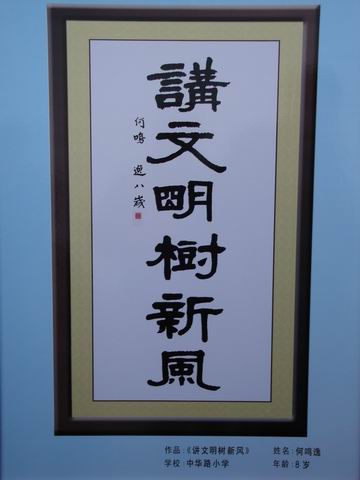 講文明樹新風
何鳴逸八歲
作品:《讲文明树新风》 姓名:何鸣逸
学校:中华路小学 年龄:8岁